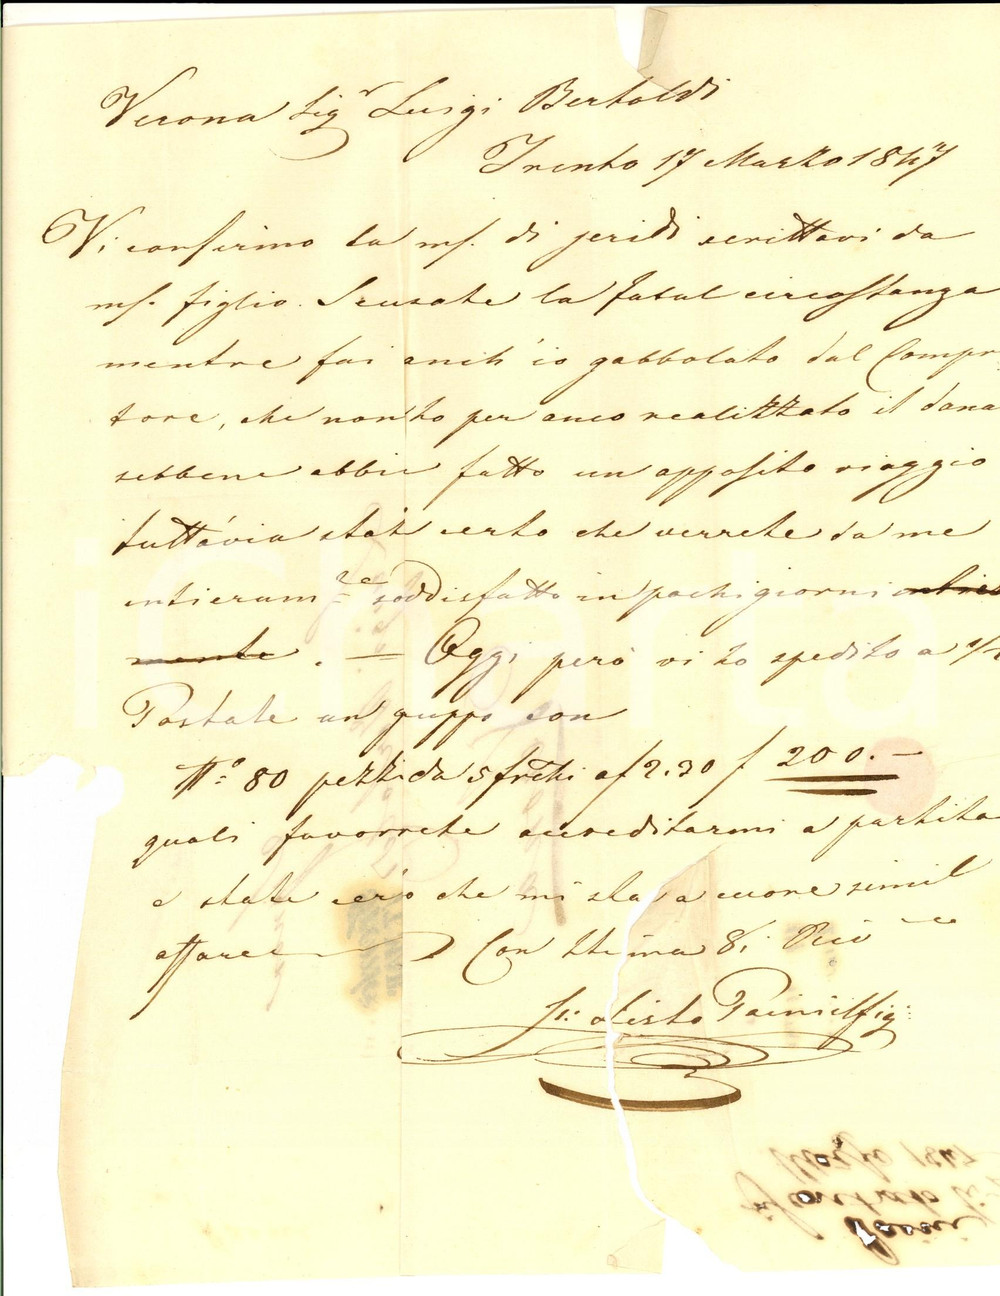 Verona Sigr Luigi Bertoldi
Trento 17 Marzo 1847
Vi confirmo la mf. di jeridi scrittavi da
mf. figlio. Scusate la fatal circostanza
mentre fui anch'io gabbolato dal Compr
tore, che non ho per anco realizzato il dana
sebbene abbia fatto un apposito viaggio
tuttavia state certo che verrete da me
intieramte soddisfatto in pochi giorni intiera
mente. — Oggi però vi ho spedito a
Postale un gruppo con
No 80 pezzi da 5 frchi a f 2.30 f 200.—
quali favorrete accreditarmi a partita
e state certo che mi sta a cuore simil
affare Con stima Vi
Listo
iCharta